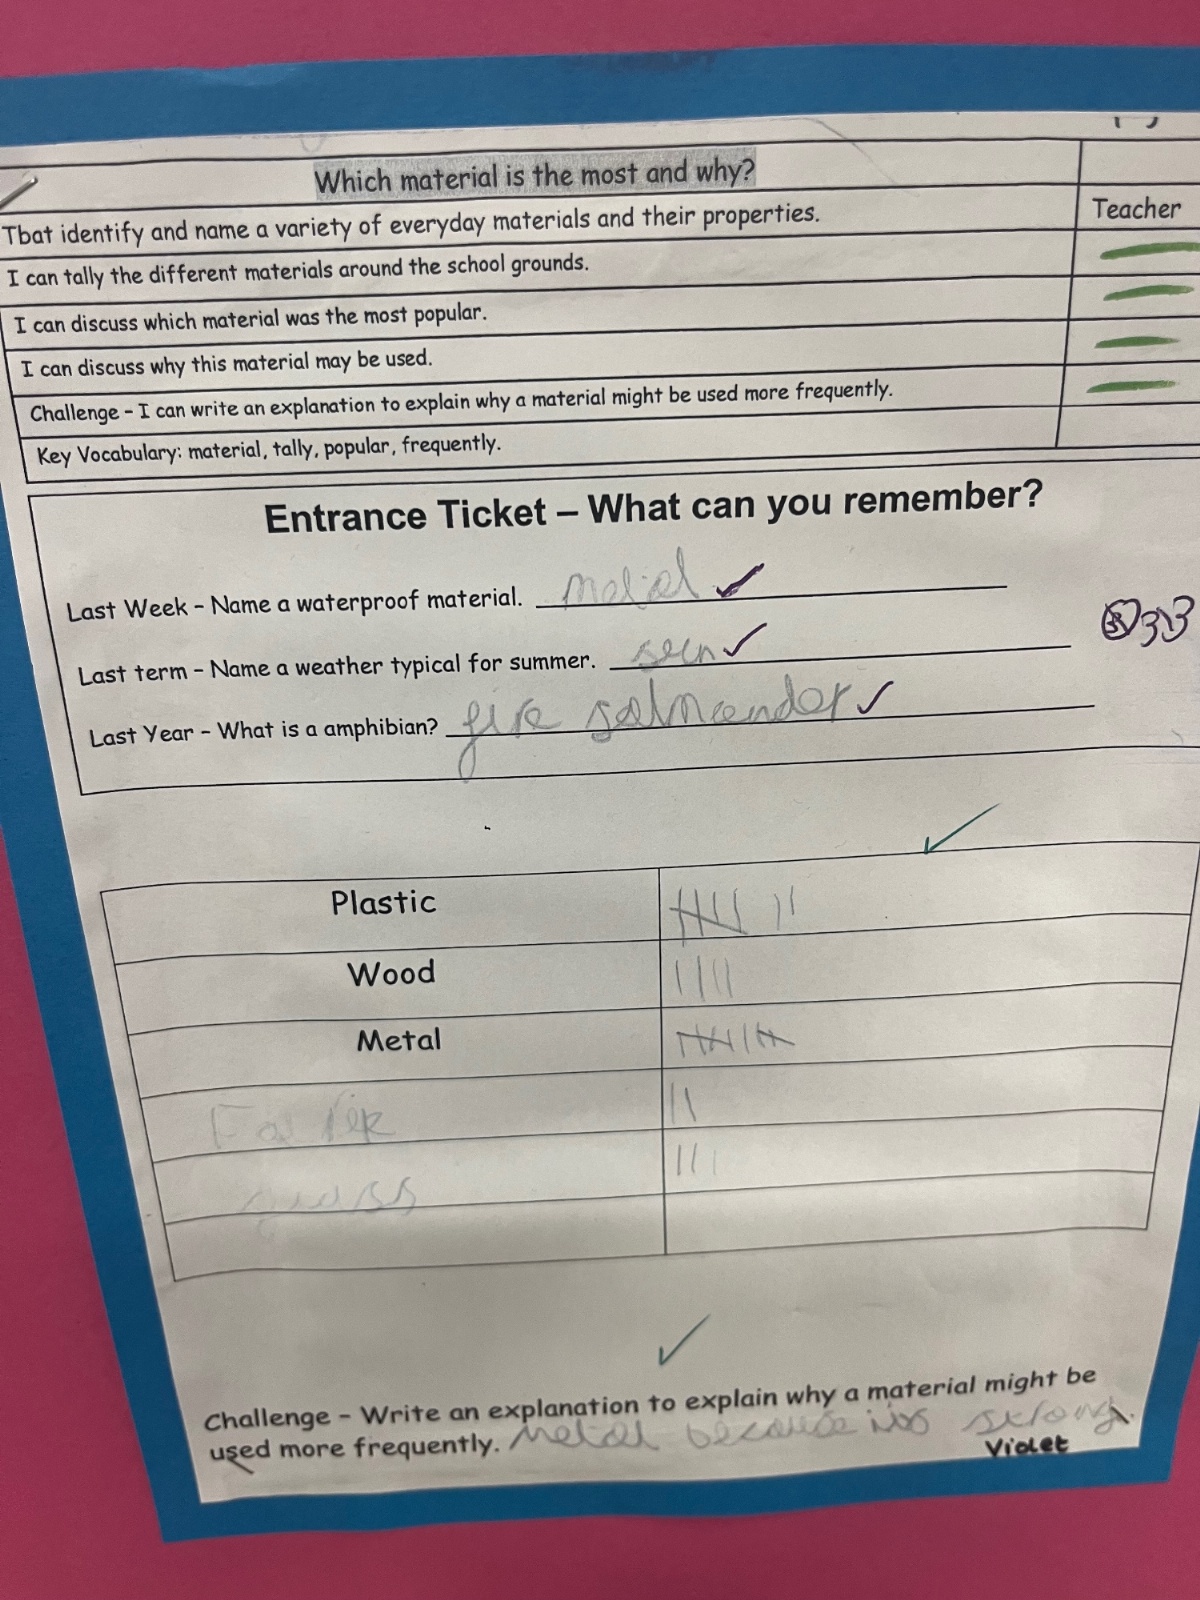 Which material is the most and why?
Tbat identify and name a variety of everyday materials and their properties.
Teacher
I can tally the different materials around the school grounds.
I can discuss which material was the most popular.
I can discuss why this material may be used.
Challenge - I can write an explanation to explain why a material might be used more frequently.
Key Vocabulary: material, tally, popular, frequently.
Entrance Ticket – What can you remember?
Last Week - Name a waterproof material. metal
Last term - Name a weather typical for summer. sun
Last Year - What is a amphibian? fire salmander
Plastic
Wood
Metal
grass
Challenge - Write an explanation to explain why a material might be
used more frequently. Metal because its strong.
Violet